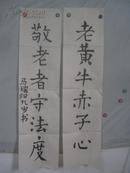 老黄牛赤子心
敬老者守法度